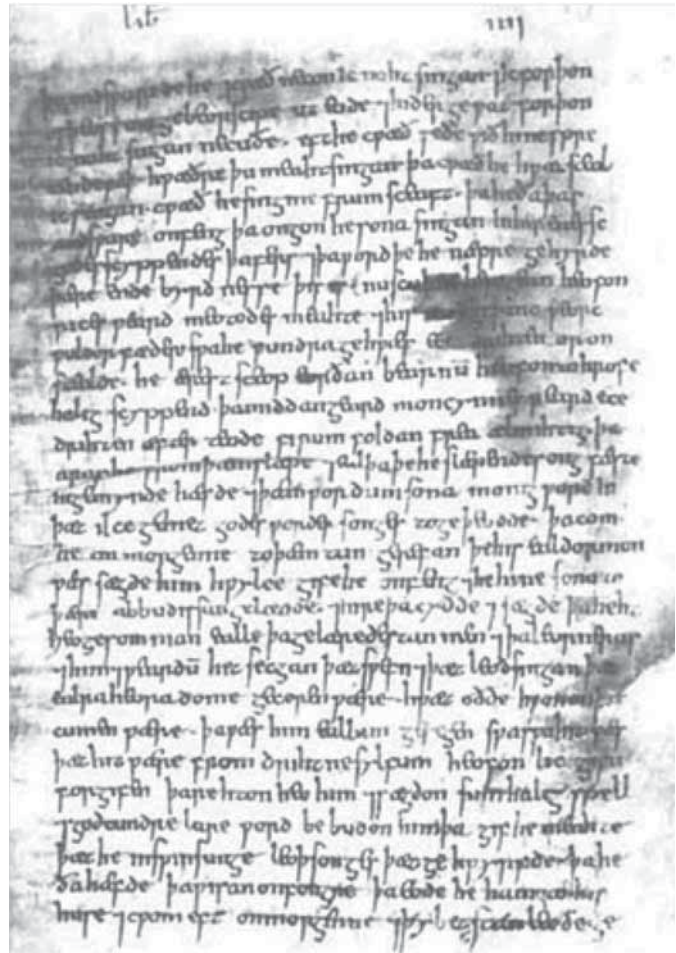 lib̄ iiii
⁊swarode he ⁊cwæð ne con ic noht singan ⁊ic forþon
of þyssum gebeorscipe ut eode ⁊hider gewat forþon
ic naht singan ne cuðe· eft he cwæð seðe wið hine spre
cende wæs hwæðre þu meaht singan þa cwæð he hwæt sceal
ic singan· cwæð he sing me frum sceaft· þa he ða þas
andsware onfeng þa ongon he sona singan in herenesse
godes scyppendes þa fers ⁊þa word þe he næfre gehyrde
þære ende byrd nesse þis is nu sculon herigean heofon
rices weard meotodes meahte ⁊his weorc
wuldor fæder swa he wundra gehwæs ece drihten or on
stealde· he ærest sceop eorðan bearnū heofon to hrofe
halig scyppend þa middangeard moncynnes weard ece
drihten æfter teode firum foldan frea ælmihtig· þa
aras he from þæm slæpe ⁊eal þa þe he slæpende song fæste
in gemynde hæfde ⁊þæm wordum sona monig word in
þæt ilce gemet gode wordes songes togeþeodde· þa com
he on morgenne to þæm tun gerefan þe his ealdormon
wæs sægde him hwylce gife he onfeng ⁊he hine sona to
þære abbudissan gelædde· ⁊hire þa cyðde ⁊sægde þa heht
heo gesomnian ealle þa gelæredestan men ⁊þa leorneras
⁊him ⁊weardū het secgan þæt swefn ⁊þæt leoð singan þæt
ealra heora dome gecoren wære· hwæt oððe hwonon þæt
cumen wære· þa wæs him eallum gesegen swa swa hit wæs
þæt him wære from drihtne sylfum heofonlic gifu
forgifen þa rehton heo him ⁊sægdon sum halig spell
⁊godcundre lare word bebudon him þa gif he meahte
þæt he in swinsunge leoþsonges þæt gehwyrfde· þa he
ða hæfde þa wisan onfongne þa eode he ham to his
huse ⁊cwom eft on morgenne ⁊þy betstan leoðe ge